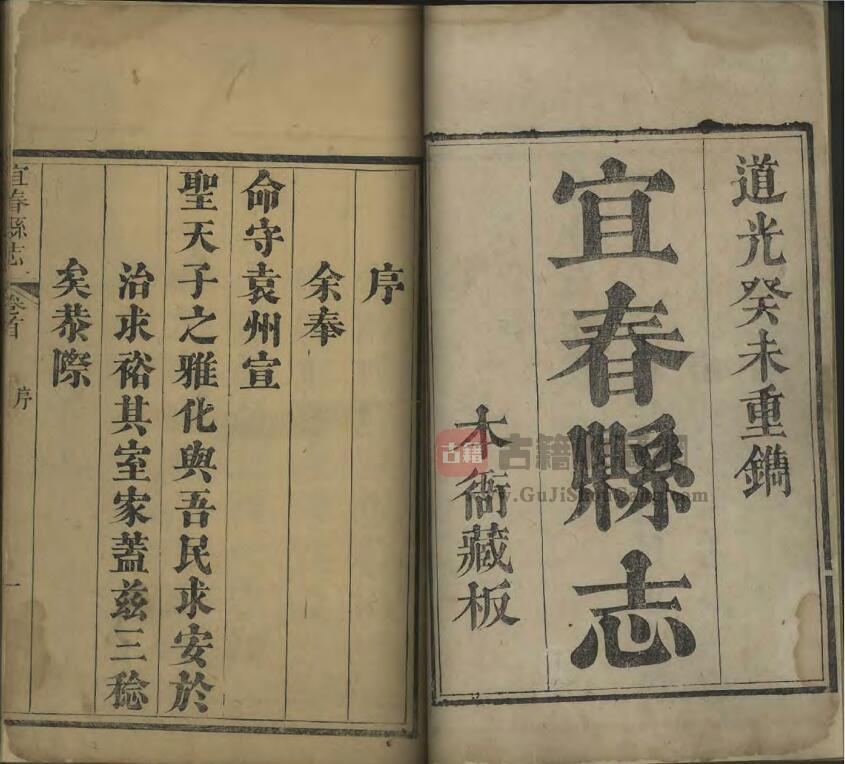 道光癸未重鐫
宜春縣志
本衙藏板
序
余奉
命守袁州宣
聖天子之雅化與吾民求安於
治求裕其室家蓋兹三稔
矣恭際
宜春縣志
卷首
序
一
古籍
古籍
www.GuJiShu